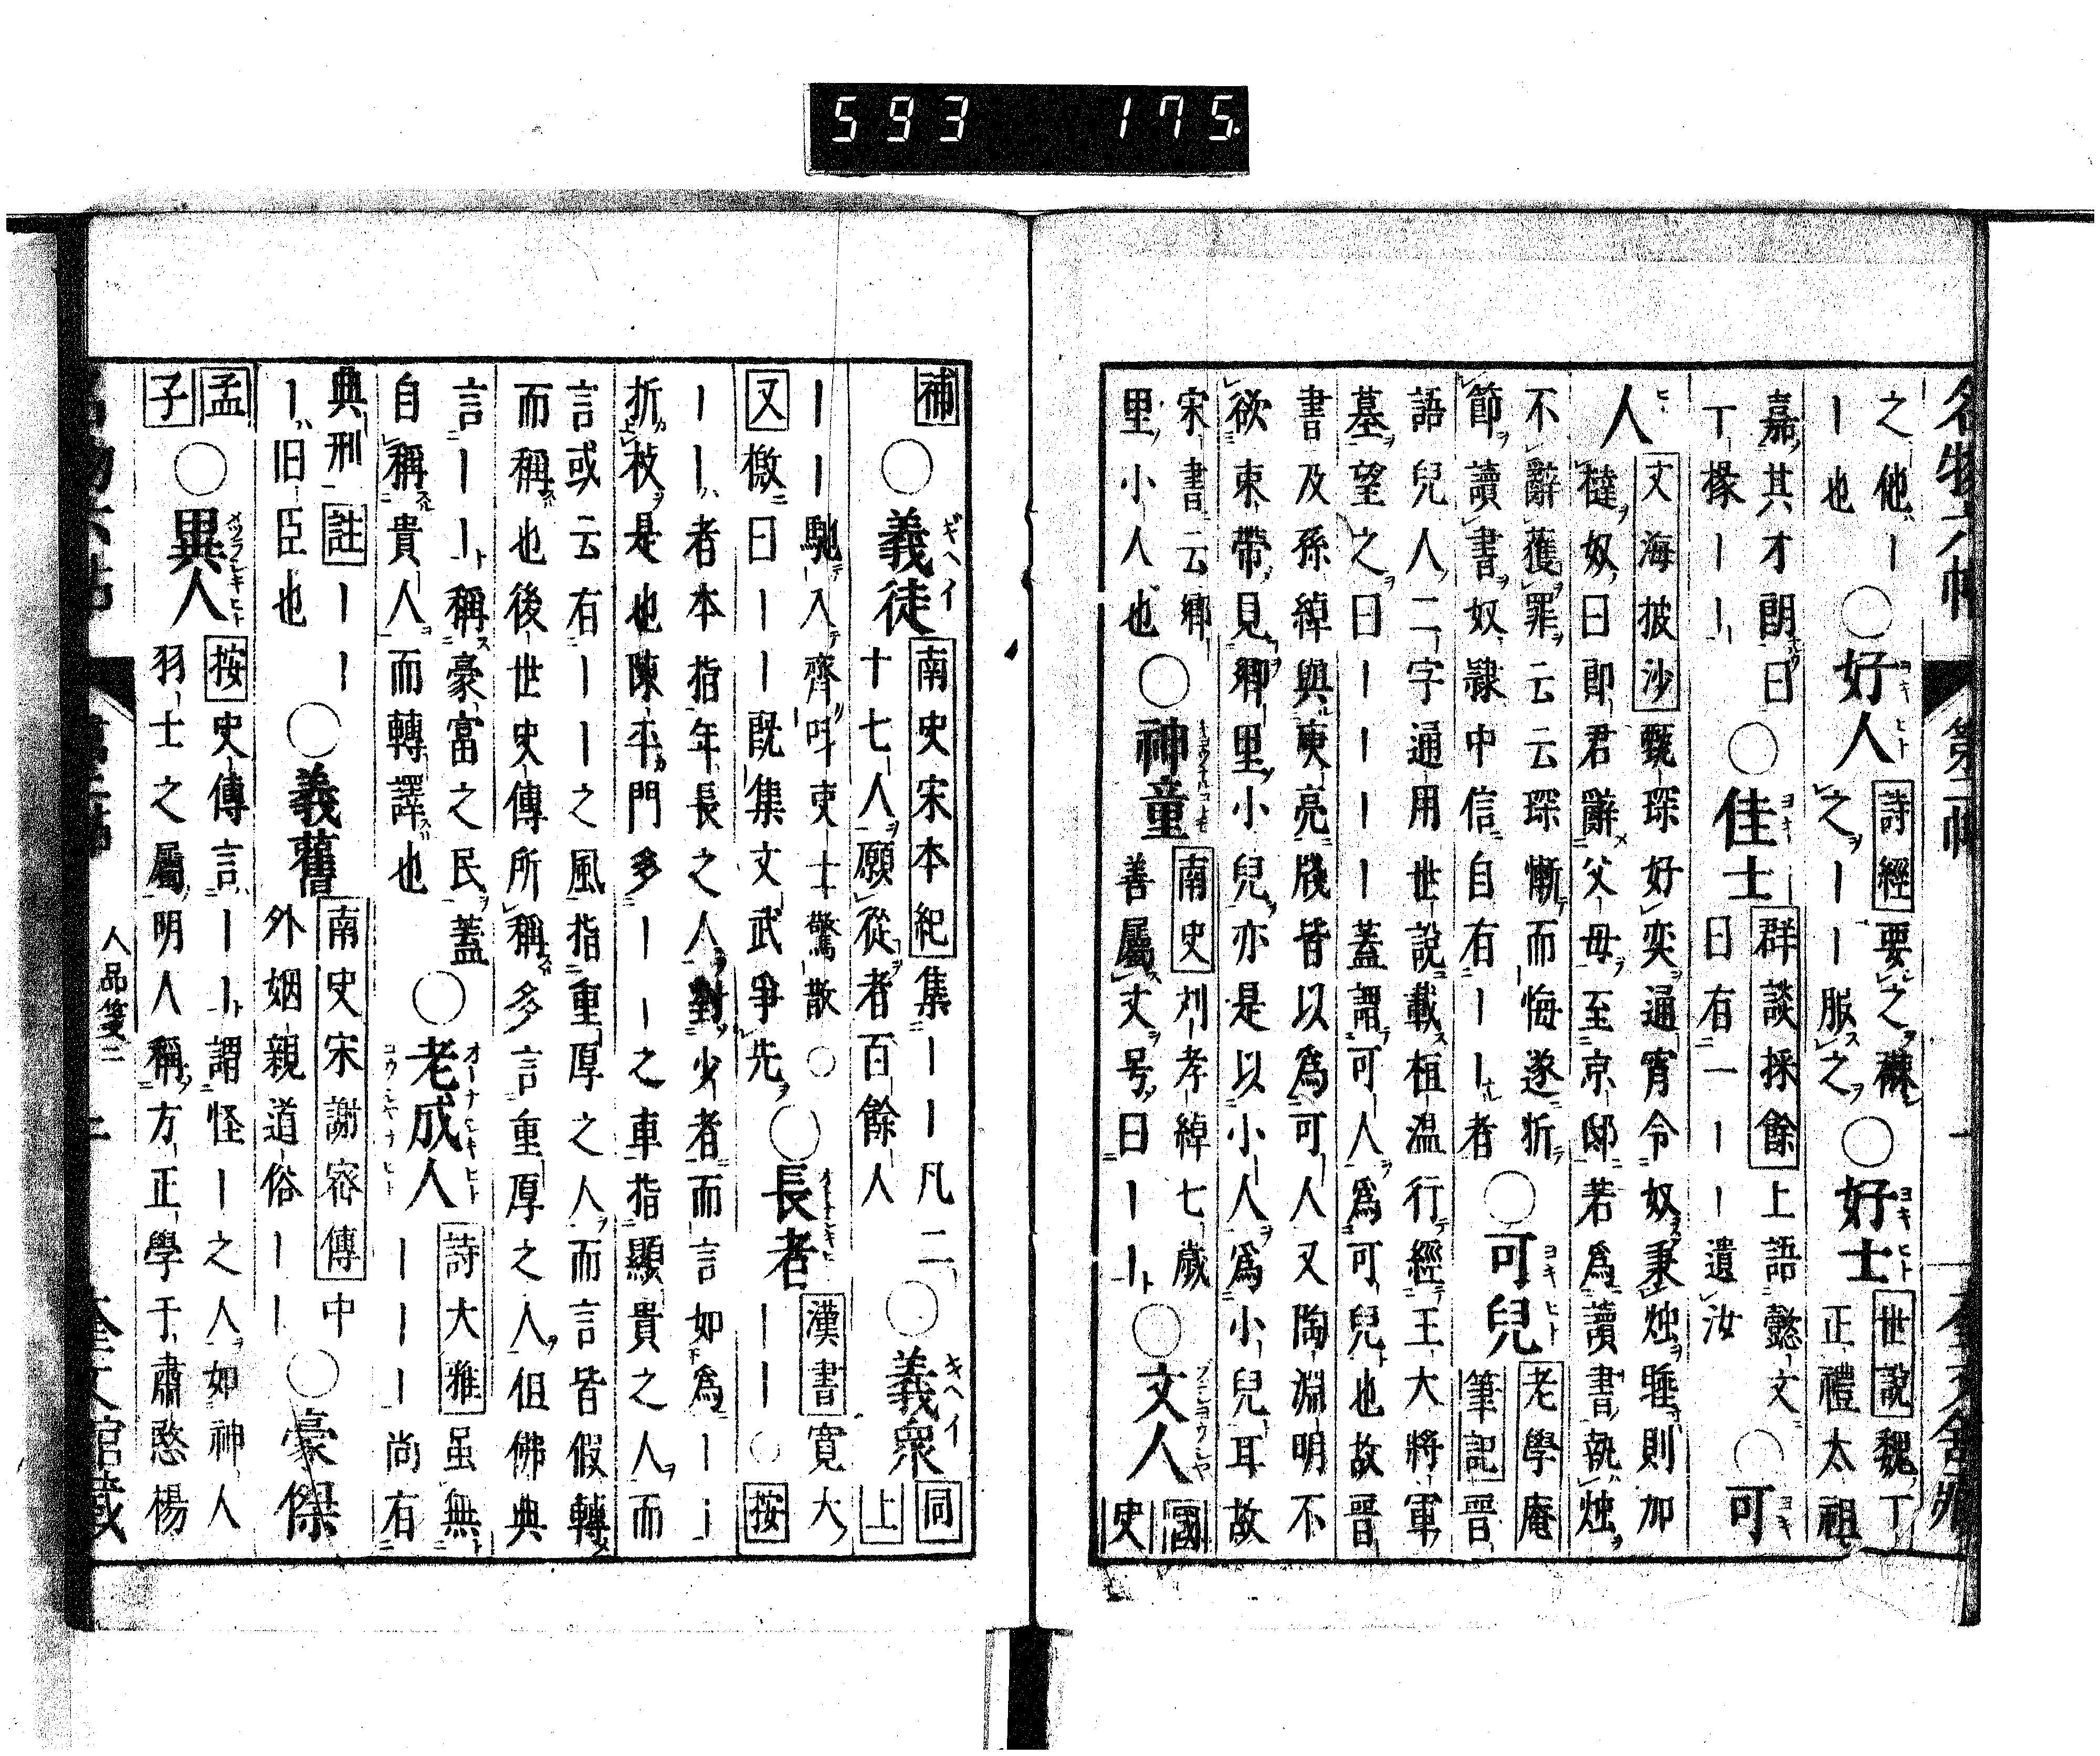 593 175.
名物六帖 第二帖
之他ー
ー也
○好人
詩經要之襋
之ーー服之
○好士
世說魏丁
正禮太祖
嘉其才朗曰
丁掾ーー
○佳士
群談採餘上語懿文
曰有一ーー遺汝
○可
人
文海披沙甄琛好奕通宵令奴秉燭睡則加
撻奴曰郎君辭父母至京邸若爲讀書執燭
不辭獲罪云云琛慚而悔遂折
節讀書奴隸中信自有ーー者
○可兒
老學庵
筆記晉
語兒人二字通用世說載桓溫行經王大將軍
墓望之曰ーーーー蓋謂可人爲可兒也故晉
書及孫綽與庾亮牋皆以爲可人又陶淵明不
欲束帶見鄉里小兒亦是以小人爲小兒耳故
宋書云鄉
里小人也
○神童
南史刘孝綽七歲
善屬文号曰ーー
○文人
國
史
補
○義徒
南史宋本紀集ーー凡二
十七人願從者百餘人
○義衆
同
上
ーー馳入齊吁吏士驚散○
又檄曰ーー既集文武爭先
○長者
漢書寬大
ーー○按
ーー者本指年長之人對少者而言如爲ーー
折枝是也陳平門多ーー之車指顯貴之人而
言或云有ーー之風指重厚之人而言皆假轉
而稱也後世史傳所稱多言重厚之人但佛典
言ーー稱豪富之民蓋
自稱貴人而轉譯也
○老成人
詩大雅虽無
ーーー尚有
典刑註ーー
ー旧臣也
○義舊
南史宋謝密傳中
外姻親道俗ーー
○豪傑
孟
子
○異人
按史傳言ーー謂怪ー之人如神人
羽士之屬明人稱方正學于肅愍楊
人品箋二
奎文館藏